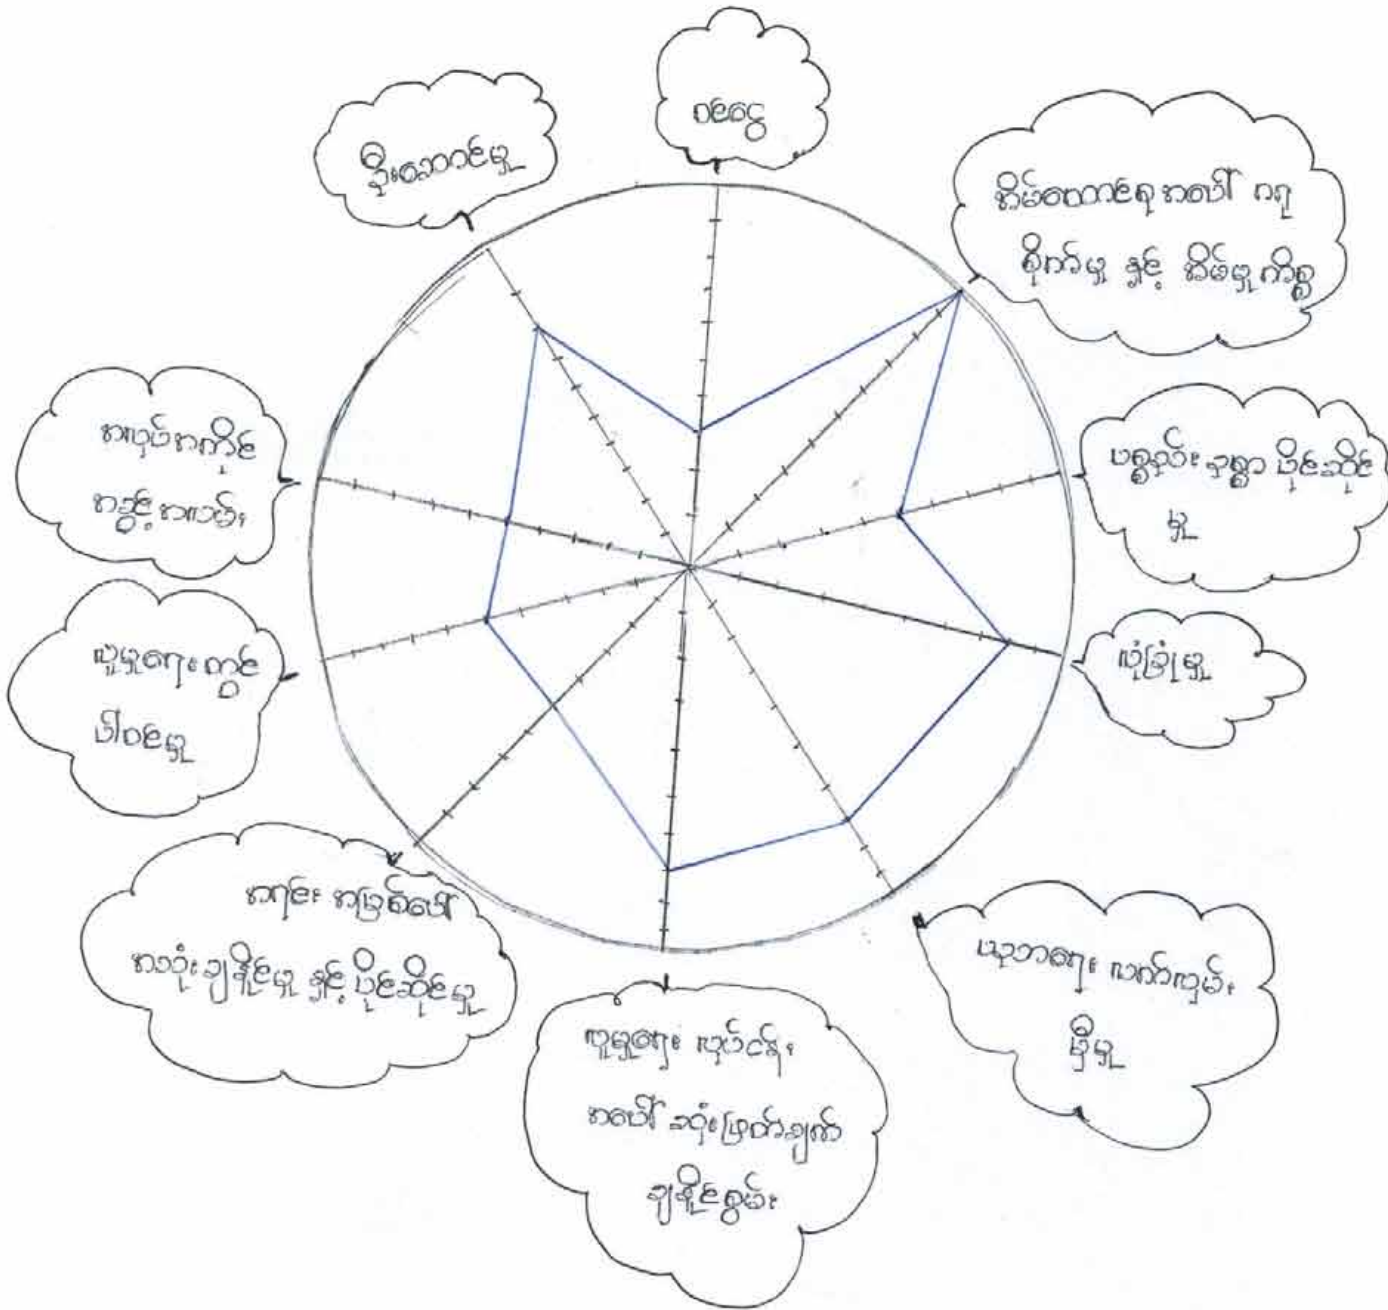 ဝင်ငွေ
အိမ်ထောင်စုအပေါ် ဂရု
စိုက်မှု နှင့် အိမ်မှုကိစ္စ
ပစ္စည်းဥစ္စာ ပိုင်ဆိုင်
မှု
လုံခြုံမှု
ပညာရေး လက်လှမ်း
မှီမှု
လူမှုရေး လုပ်ငန်း
အပေါ် ဆုံးဖြတ်ချက်
ချနိုင်စွမ်း
အရင်း အမြစ်ပေါ်
အသုံးချနိုင်မှု နှင့် ပိုင်ဆိုင်မှု
လူမှုရေးတွင်
ပါဝင်မှု
အလုပ်အကိုင်
အခွင့်အလမ်း
ဦးဆောင်မှု